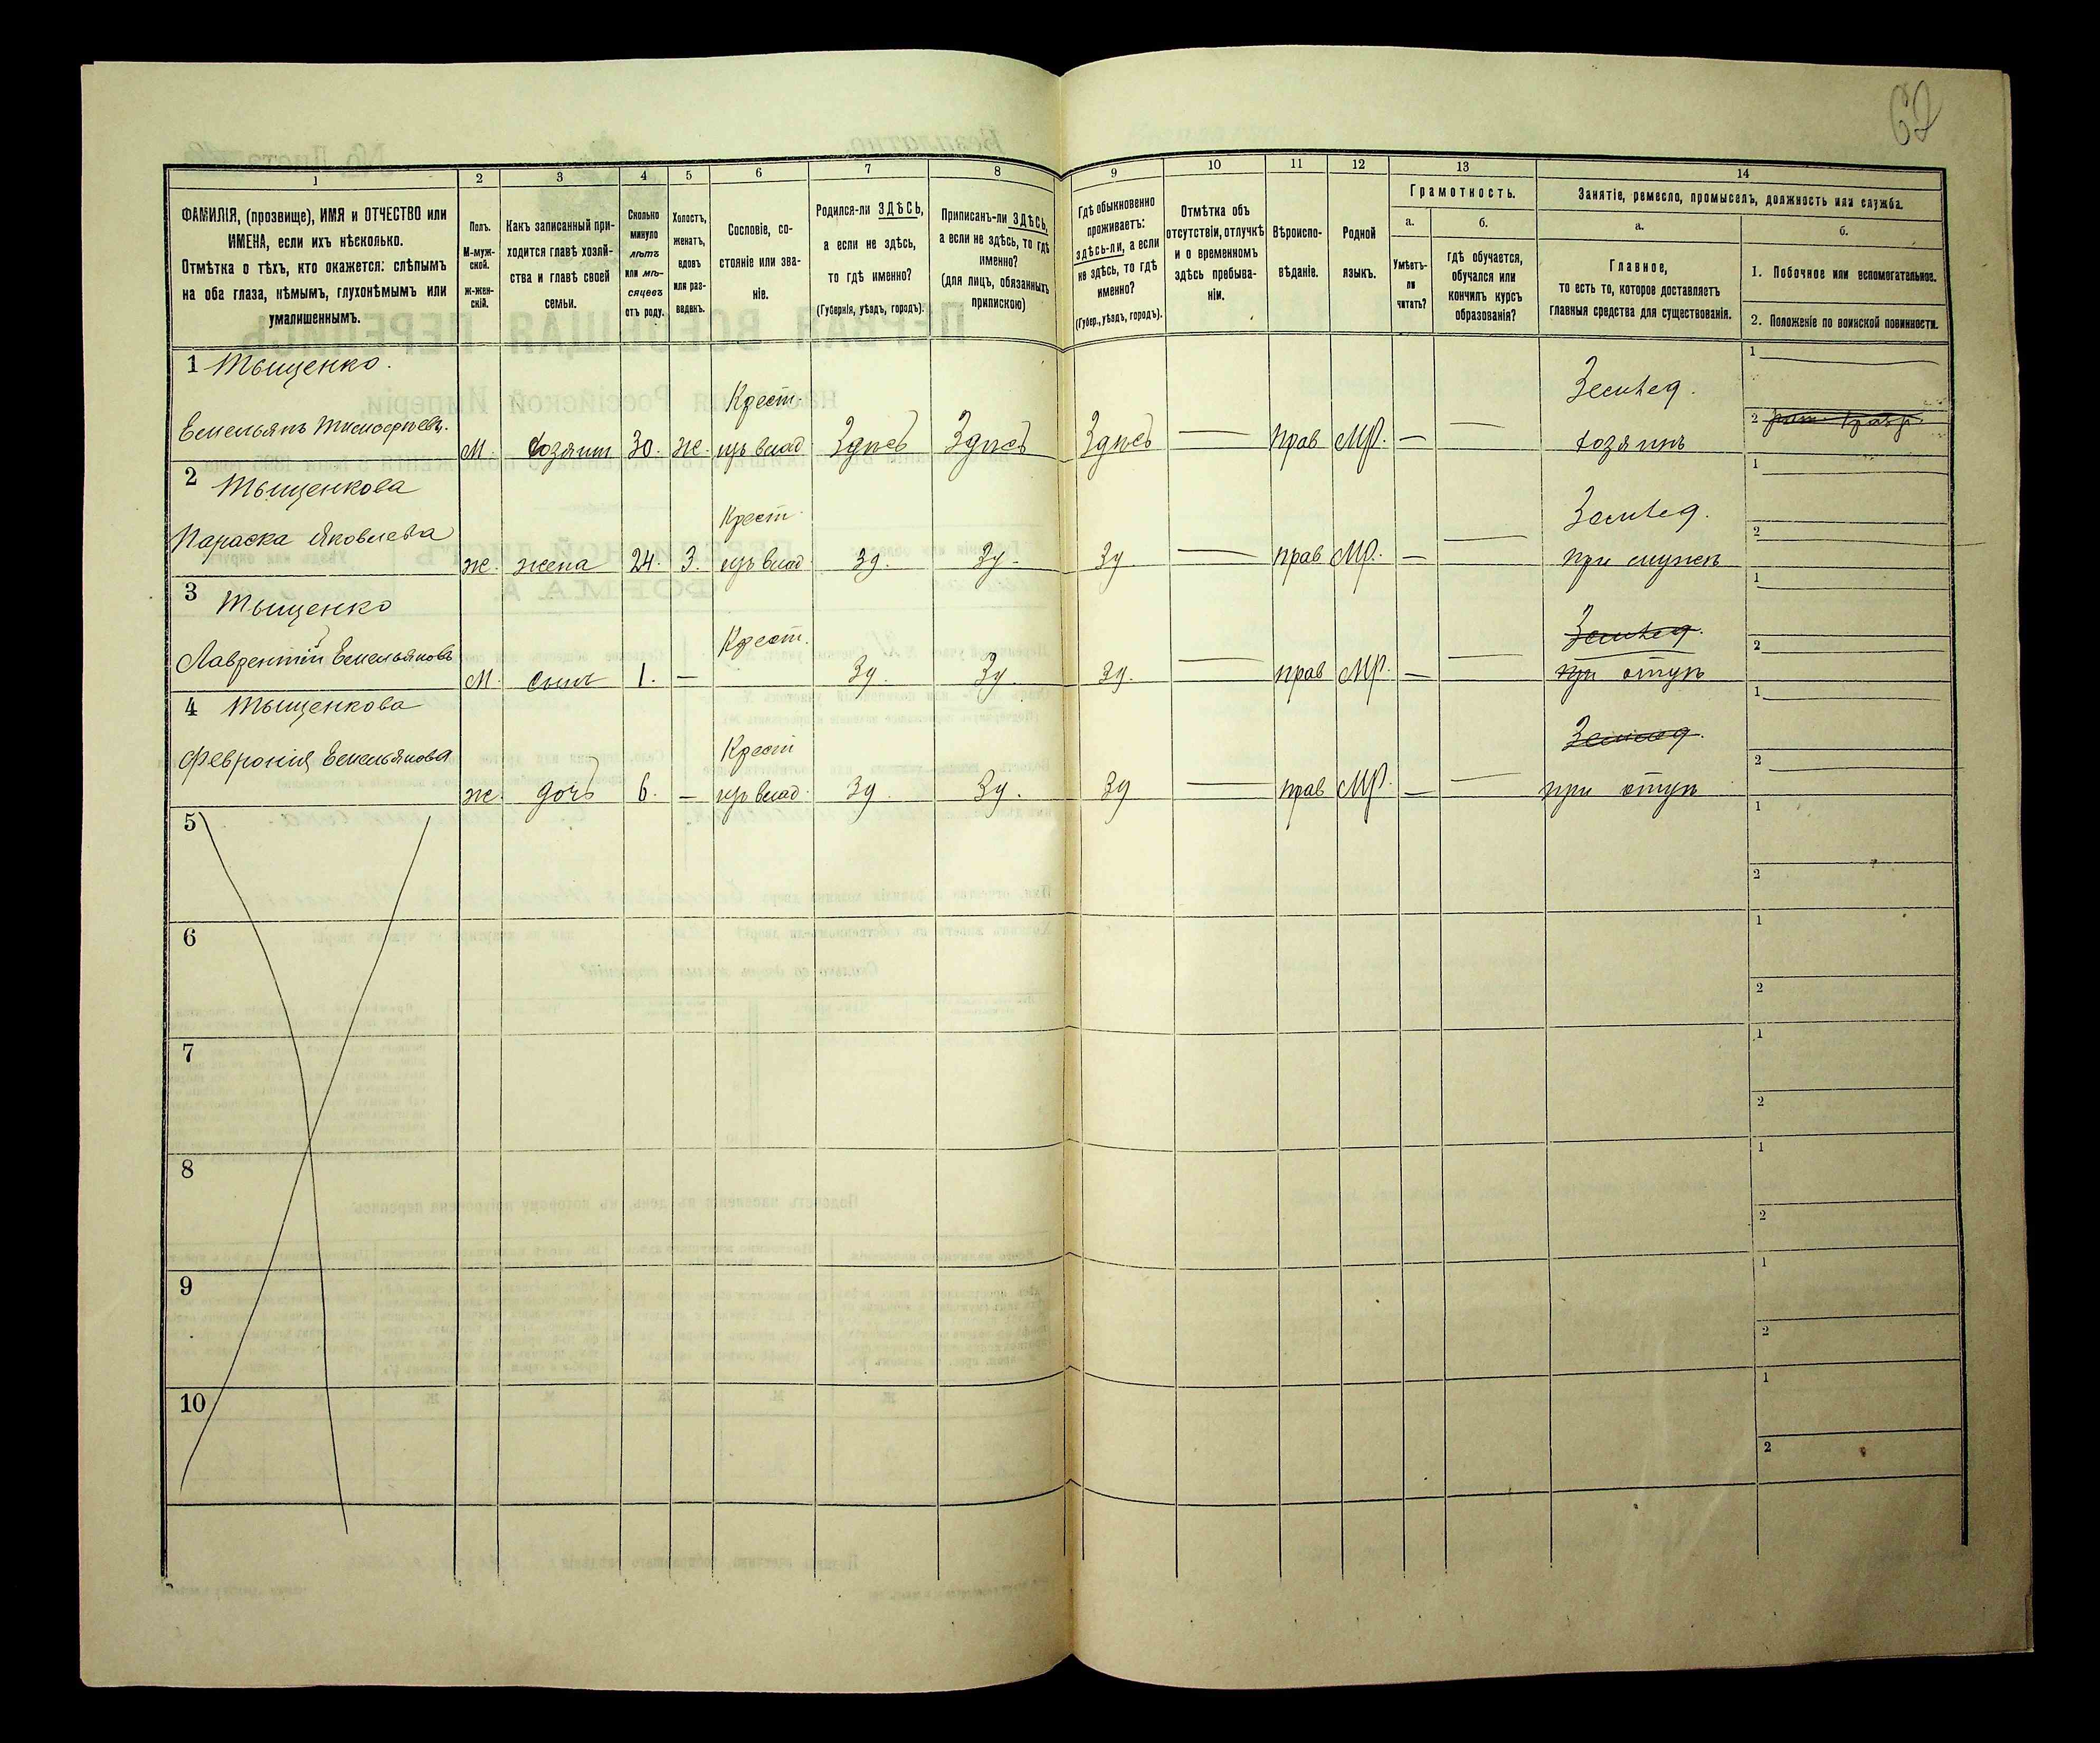 62
1
2
3
4
5
6
7
8
9
10
11
12
13
14
ФАМИЛІЯ, (прозвище), ИМЯ и ОТЧЕСТВО или
ИМЕНА, если ихъ нѣсколько.
Отмѣтка о тѣхъ, кто окажется: слѣпымъ
на оба глаза, нѣмымъ, глухонѣмымъ или
умалишеннымъ.
Полъ.
М-муж-
ской.
ж-жен-
скій.
Какъ записанный при-
ходится главѣ хозяй-
ства и главѣ своей
семьи.
Сколько
минуло
лѣтъ
или мѣ-
сяцевъ
отъ роду.
Холостъ,
женатъ,
вдовъ
или раз-
веденъ.
Сословіе, со-
стояніе или зва-
ніе.
Родился-ли ЗДѢСЬ,
а если не здѣсь,
то гдѣ именно?
(Губернія, уѣздъ, городъ).
Приписанъ-ли ЗДѢСЬ,
а если не здѣсь, то гдѣ
именно?
(для лицъ, обязанныхъ
припискою)
Гдѣ обыкновенно
проживаетъ:
здѣсь-ли, а если
не здѣсь, то гдѣ
именно?
(Губер., уѣздъ, городъ).
Отмѣтка объ
отсутствіи, отлучкѣ
и о временномъ
здѣсь пребыва-
ніи.
Вѣроиспо-
вѣданіе.
Родной
языкъ.
Грамотность.
а.
Умѣетъ-
ли
читать?
б.
гдѣ обучается,
обучался или
кончилъ курсъ
образованія?
Занятіе, ремесло, промыселъ, должность или служба.
а.
Главное,
то есть то, которое доставляетъ
главныя средства для существованія.
б.
1. Побочное или вспомогательное.
2. Положеніе по воинской повинности.
1 Тыщенко.
Крест.
Земlед.
1
Емельянъ Тимофѣевъ. М. хозяин 30. ж. Здпсь Здпсь Здпсь — прав МР. — — хозяинъ
2
2 Тыщенкова
Крест.
Земlед.
1
Параска Яковлева ж. жена 24. З. Зд. Зд. Зд — прав МР. — — при мужѣ
2
3 Тыщенко
Крест.
Землед.
1
Лаврентій Емельяновъ М. сынъ 1. — Зд. Зд. Зд. — прав МР. — — при отцѣ
2
4 Тыщенкова
Крест
Землед.
1
Февронія Емельянова ж. дочь 6. — Зд. Зд. Зд — прав МР. — — при отцѣ
2
5
1
2
6
1
2
7
1
2
8
1
2
9
1
2
10
1
2